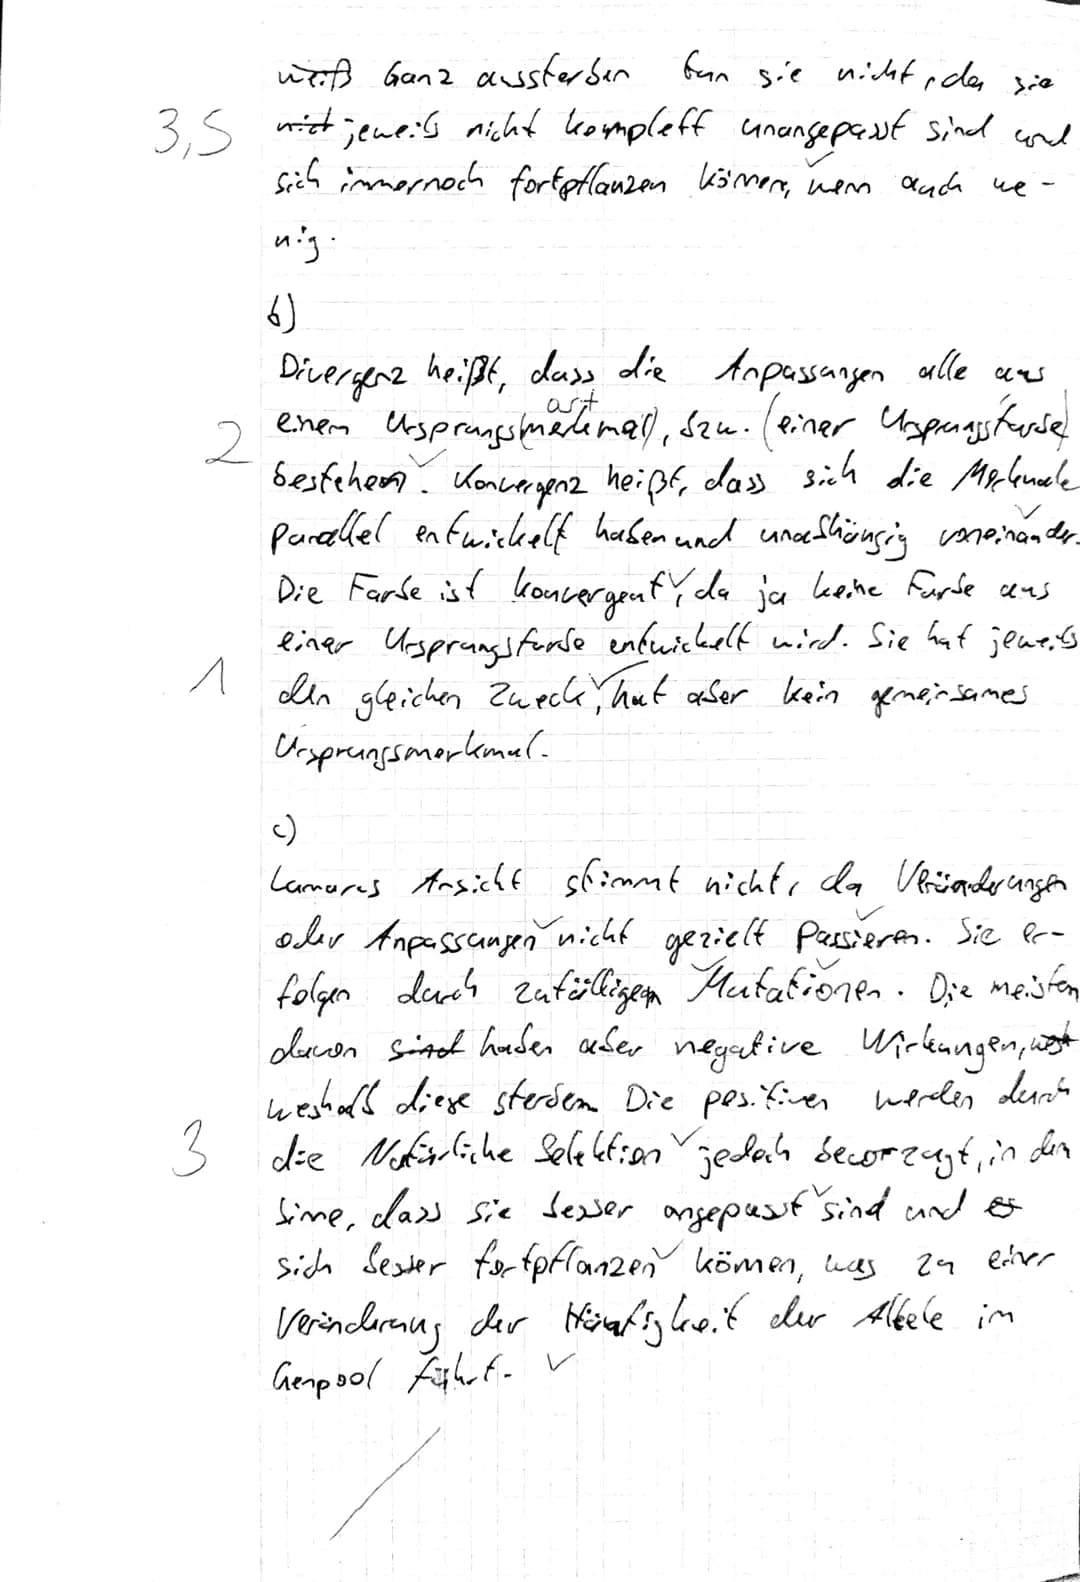 weiß Ganz aussterben tun sie nicht, da sie
3,5 nict jeweils nicht komplett unangepasst sind und
sich immernoch fortpflanzen können, wenn auch we-
nig.
b)
Divergenz heißt, dass die Anpassungen alle aus
art
2 einem Ursprungs(merkmal), bzw. (einer Ursprungsfarbe)
bestehen. Konvergenz heißt, dass sich die Merkmale
parallel entwickelt haben und unabhängig voneinander.
Die Farbe ist konvergent, da ja keine Farbe aus
einer Ursprungsfarbe entwickelt wird. Sie hat jeweils
1 den gleichen Zweck, hat aber kein gemeinsames
Ursprungsmerkmal.
c)
Lamarcs Ansicht stimmt nicht, da Veränderungen
oder Anpassungen nicht gezielt Passieren. Sie er-
folgen durch zufälligen Mutationen. Die meisten
davon sind haben aber negative Wirkungen,
weshalb diese sterben. Die positiven werden durch
3 die Natürliche Selektion jedoch bevorzugt, in dem
Sinne, dass sie besser angepasst sind und
sich besser fortpflanzen können, was zu einer
Veränderung der Häufigkeit der Allele im
Genpool führt.